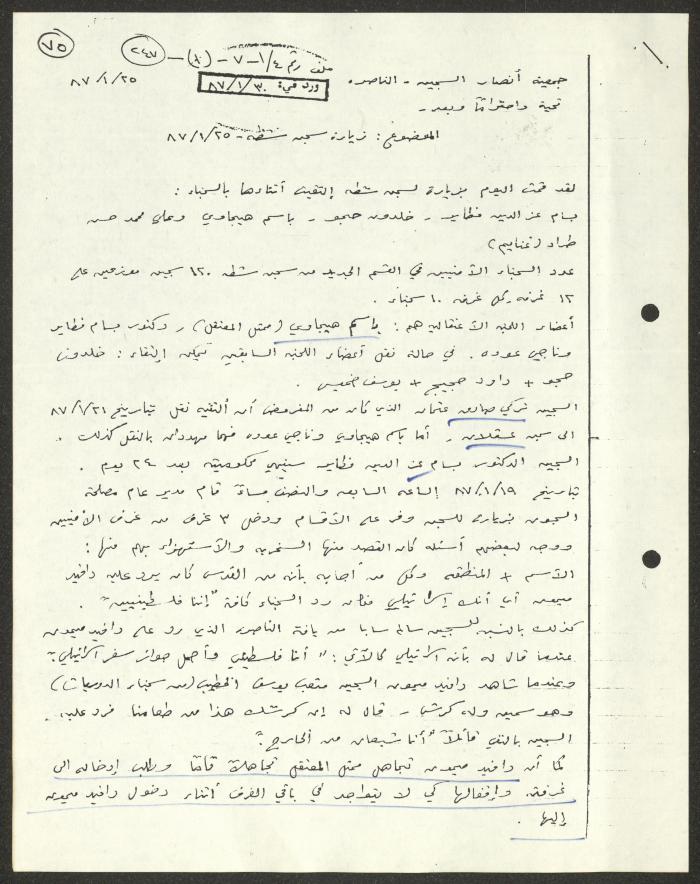 ٧٥
٢٤٧ - (٨) - ٧ - ١/٤ ملف رقم
ورد في: ٨٧/١/٣٠
جمعية أنصار السجين - الناصره ٨٧/١/٢٥
تحية واحتراما وبعد -
الموضوع: زيارة سجن شطه - ٨٧/١/٢٥
لقد قمت اليوم بزيارة لسجن شطه إلتقيت أثناءها بالسجناء:
بسام عز الدين فطاير - خلدون حجو - باسم هيجاوي وعلي محمد حسن
طراد (غنايم)
عدد السجناء الأمنيين في القسم الجديد من سجن شطه ١٢٠ سجين موزعين على
١٢ غرفه بكل غرفه ١٠ سجناء.
أعضاء اللجنه الاعتقاليه هم: باسم هيجاوي (ممثل المعتقل) ، دكتور بسام فطاير
وناجي عوده. في حالة نقل أعضاء اللجنه السابقين تمكن إلتقاء: خلدون
حجو + داود حجيج + يوسف خميس.
السجين تركي صادق عثمان الذي كان من المفروض أن ألتقيه نقل بتاريخ ٨٧/١/٢١
الى سجن عسقلان، أما باسم هيجاوي وناجي عوده فهما مهددان بالنقل كذلك.
السجين الدكتور بسام عز الدين فطاير ستنتهي محكوميته بعد ٢٤ يوم.
بتاريخ ٨٧/١/١٩ الساعه السابعه والنصف مساءً قام مدير عام مصلحة
السجون بزياره للسجن ومر على الأقسام ودخل ٣ غرف من غرف الأمنيين
ووجه لبعضهم أسئله كان القصد منها السخريه والأستهزاء بهم منها:
الأسم + المنطقه وكل من أجابه بأنه من القدس كان يرد عليه دافيد
ميمون أي أنك إسرائيلي فكان رد السجناء كافة "إننا فلسطينيين".
كذلك بالنسبه للسجين سالم سابا من يافة الناصره الذي رد على دافيد ميمون
عندما قال له بأنه اسرائيلي كالآتي: "أنا فلسطيني وأحمل جواز سفر اسرائيلي"
وعندما شاهد دافيد ميمون السجين متعب يوسف الخطيب (من سجناء الدوريات)
وهو سمين وله كرش - قال له إن كرشك هذا من طعامنا فرد عليه
السجين بالنفي قائلاً "أنا شبعان من الخارج".
كما أن دافيد ميمون تجاهل ممثل المعتقل تجاهلاً تاماً وطلب إدخاله الى
غرفته وإقفالها كي لا يتواجد في باقي الغرف أثناء دخول دافيد ميمون
إليها.